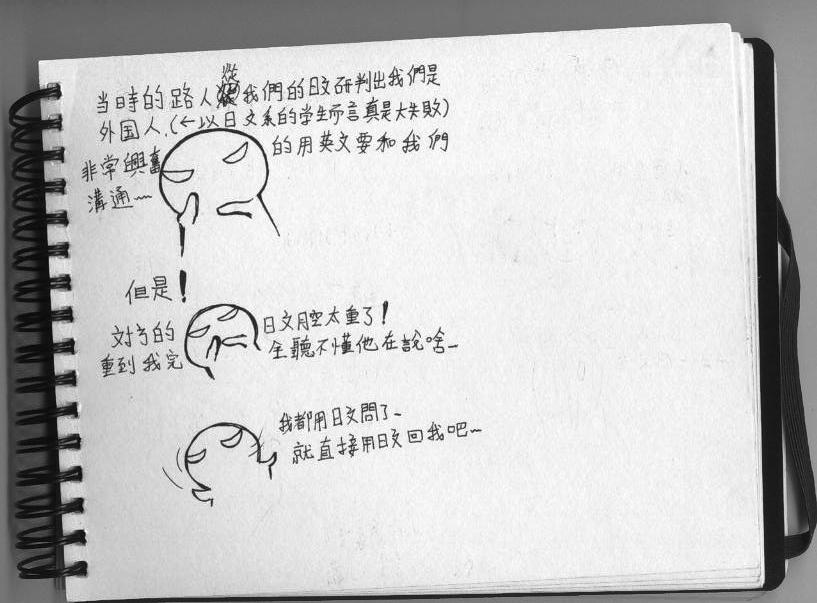 当時的路人從我們的日文研判出我們是
外国人.(←以日文系的学生而言真是大失敗)
非常興奮的用英文要和我們
溝通～
但是!
对方的日文腔太重了!
重到我完全聽不懂他在說啥～
我都用日文問了～
就直接用日文回我吧～